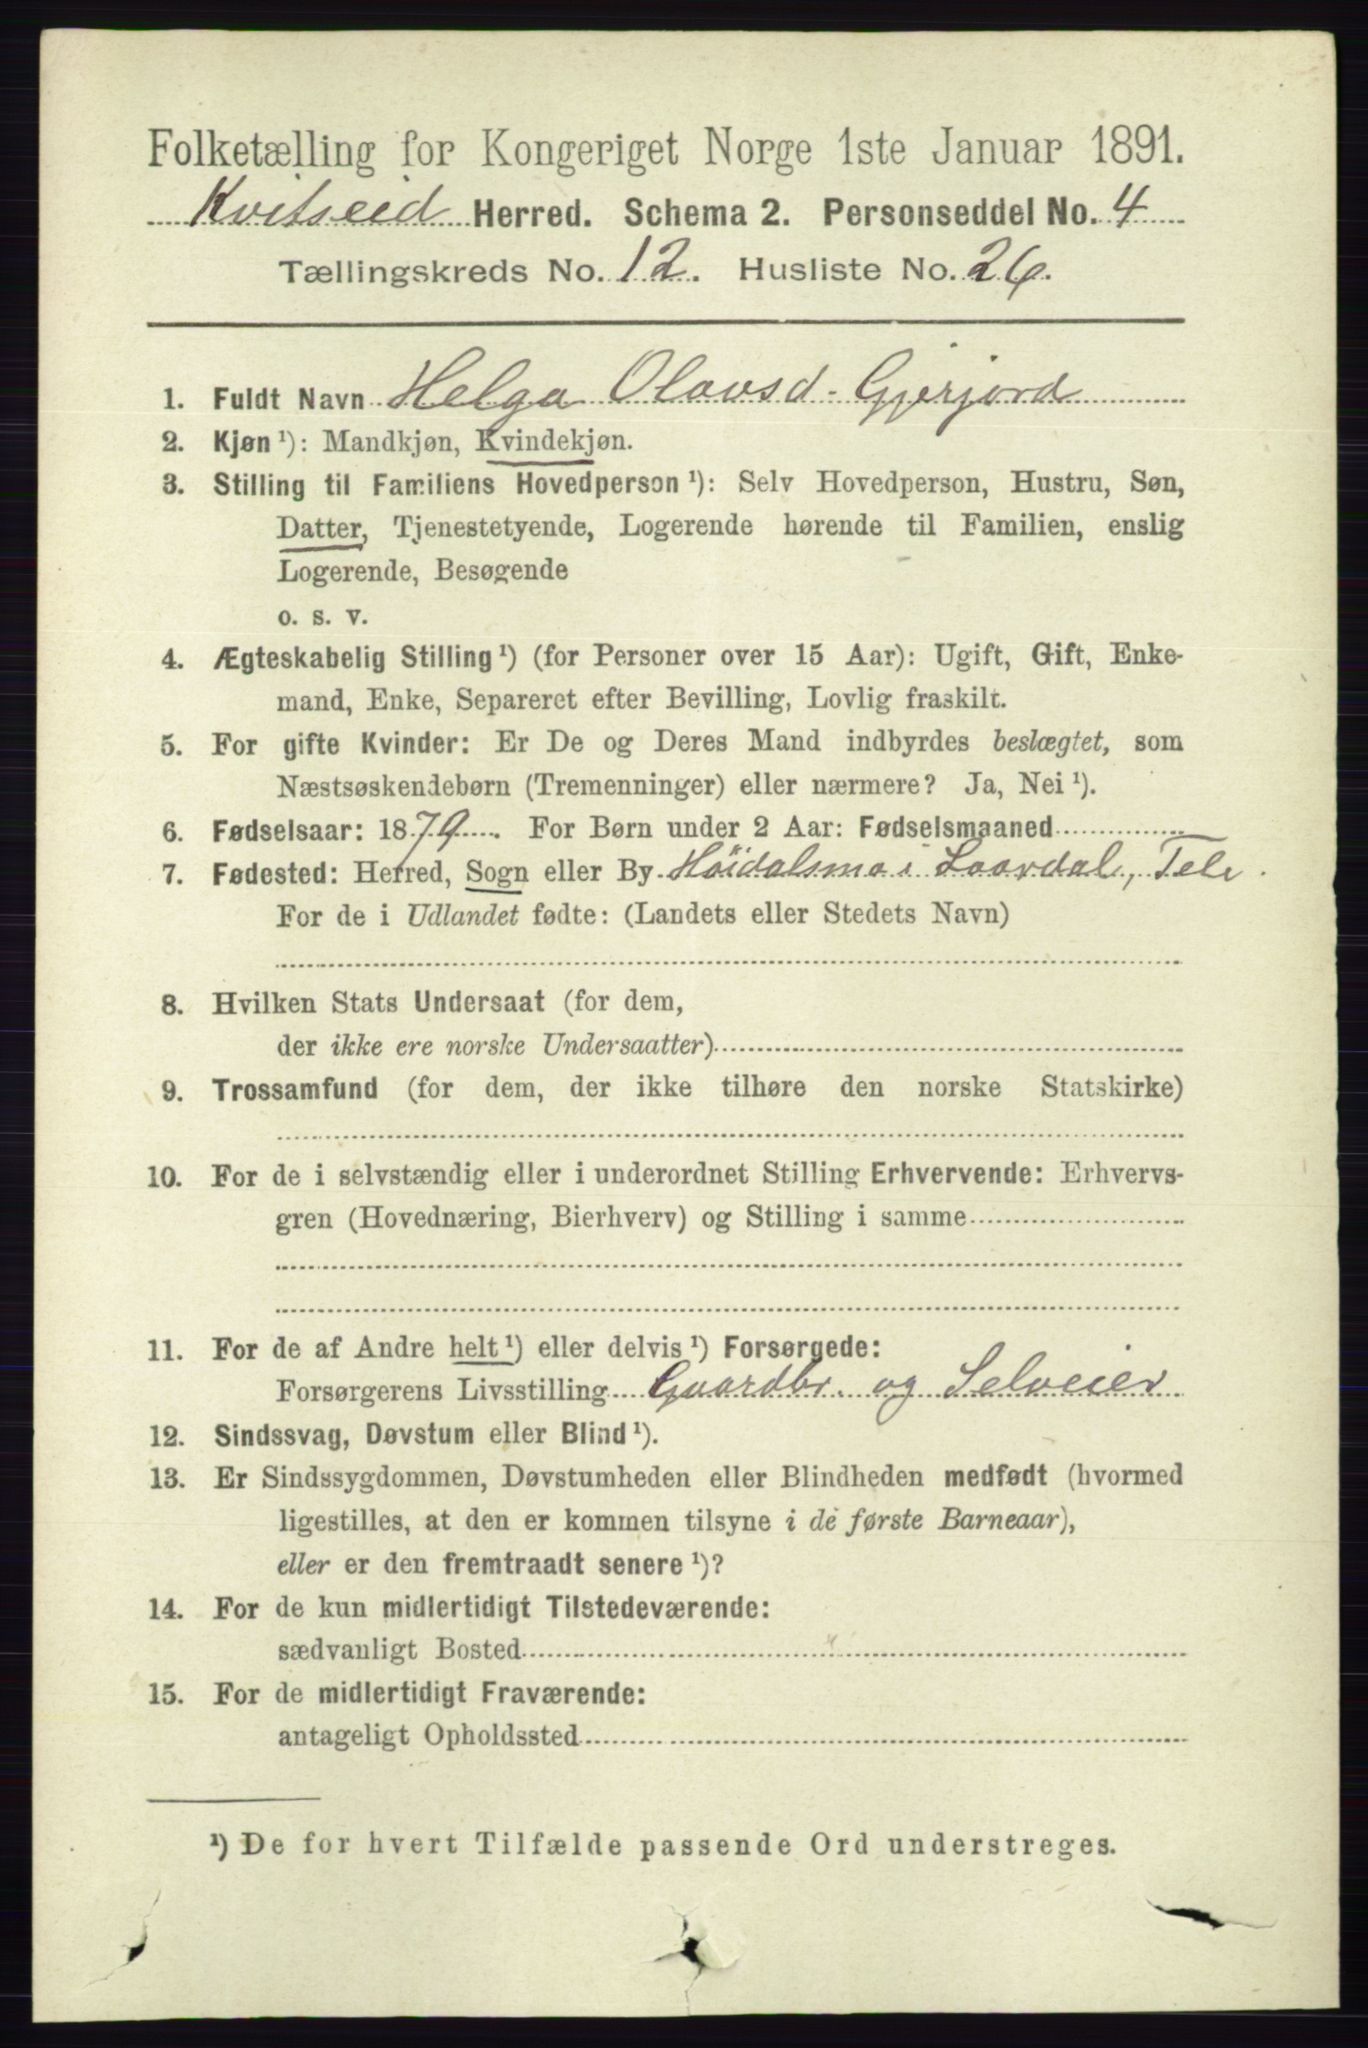 Folketælling for Kongeriget Norge 1ste Januar 1891.
Kvitseid Herred. Schema 2. Personseddel No. 4
Tællingskreds No. 12. Husliste No. 26.
1. Fuldt Navn Helga Olavsd. Gjerjord
2. Kjøn ¹): Mandkjøn, Kvindekjøn.
3. Stilling til Familiens Hovedperson ¹): Selv Hovedperson, Hustru, Søn,
Datter, Tjenestetyende, Logerende hørende til Familien, enslig
Logerende, Besøgende
o. s. v.
4. Ægteskabelig Stilling ¹) (for Personer over 15 Aar): Ugift, Gift, Enke-
mand, Enke, Separeret efter Bevilling, Lovlig fraskilt.
5. For gifte Kvinder: Er De og Deres Mand indbyrdes beslægtet, som
Næstsøskendebørn (Tremenninger) eller nærmere? Ja, Nei ¹).
6. Fødselsaar: 1879. For Børn under 2 Aar: Fødselsmaaned
7. Fødested: Herred, Sogn eller By Höidalsmo i Laardal, Tele.
For de i Udlandet fødte: (Landets eller Stedets Navn)
8. Hvilken Stats Undersaat (for dem,
der ikke ere norske Undersaatter)
9. Trossamfund (for dem, der ikke tilhøre den norske Statskirke)
10. For de i selvstændig eller i underordnet Stilling Erhvervende: Erhvervs-
gren (Hovednæring, Bierhverv) og Stilling i samme
11. For de af Andre helt ¹) eller delvis ¹) Forsørgede:
Forsørgerens Livsstilling Gaardbr. og Selveier
12. Sindssvag, Døvstum eller Blind ¹).
13. Er Sindssygdommen, Døvstumheden eller Blindheden medfødt (hvormed
ligestilles, at den er kommen tilsyne i de første Barneaar),
eller er den fremtraadt senere ¹)?
14. For de kun midlertidigt Tilstedeværende:
sædvanligt Bosted
15. For de midlertidigt Fraværende:
antageligt Opholdssted
¹) De for hvert Tilfælde passende Ord understreges.